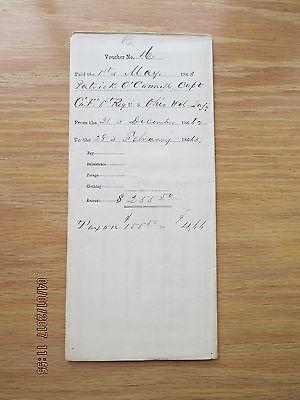 Voucher No. 16
Paid the 1st of May 1863
Patrick O'Connell, Capt
Co. "K" 1st Reg U.S. Ohio Vol. Infy
From the 31st December 1862
To the 28th February 1863,
Pay
Subsistence
Forage
Clothing
Amount $ 255 50
Tax on $155 50 = $4,66
04/01/2017 11:35